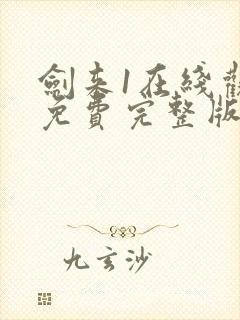 劍来1在綫觀
免費完整版
九玄沙